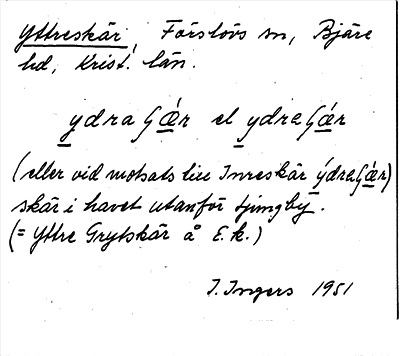 Yttreskär, Förslövs sn, Bjäre
hd, Krist. län.
ydraʃǽr el ydraʃǽr
(eller vid motsats till Inreskär ýdraʃær)
skär i havet utanför Ljungby.
(= Yttre Grytskär å E.k.)
I. Ingers 1951